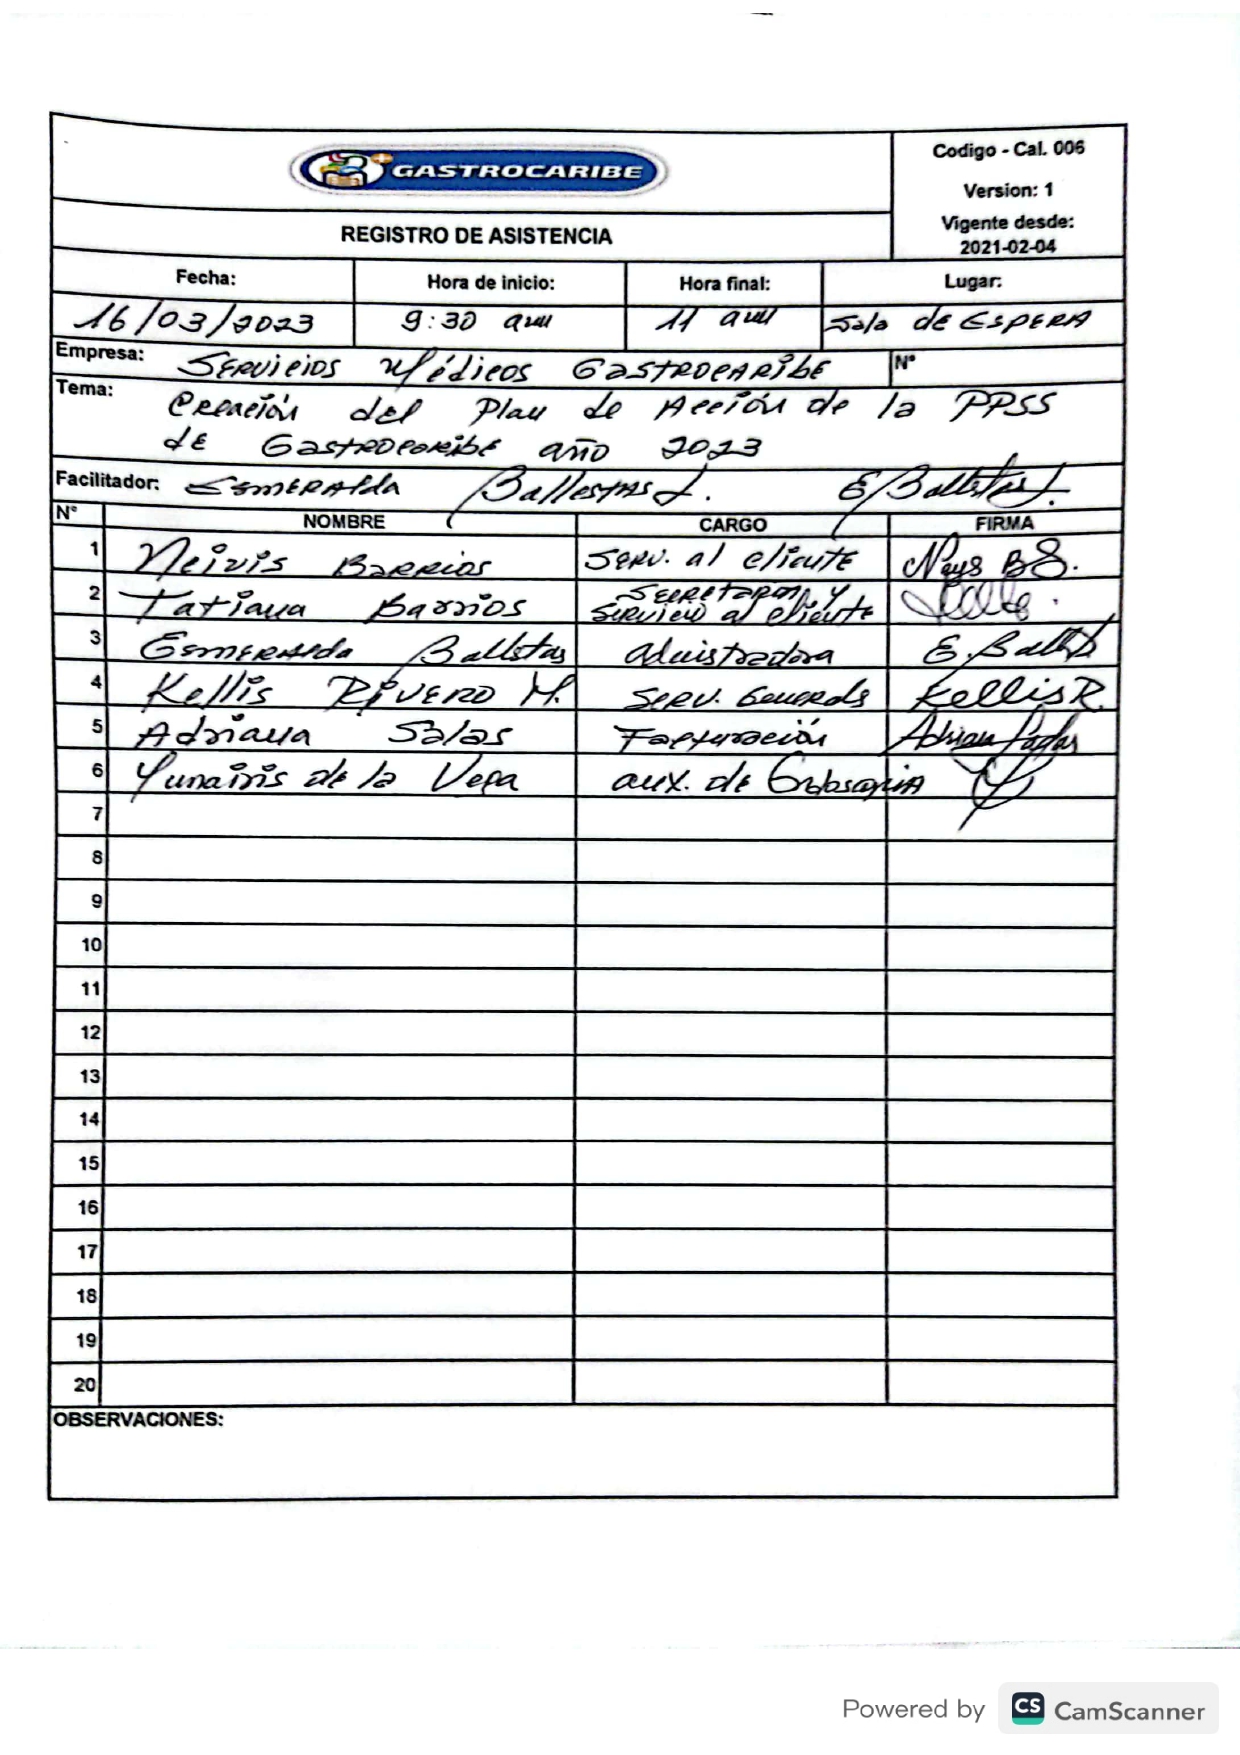 GASTROCARIBE
Codigo - Cal. 006
Version: 1
Vigente desde:
2021-02-04
REGISTRO DE ASISTENCIA
Fecha: Hora de inicio: Hora final: Lugar:
16/03/2023 9:30 am 11 am Sala de ESPERA
Empresa: Servicios Médicos GastroCaribe N°
Tema: Creación del Plan de Acción de la PPSS
de Gastrocaribe año 2023
Facilitador: Esmeralda Ballestas L. E Ballestas L.
N° NOMBRE CARGO FIRMA
1 Neivis Barrios Serv. al cliente Neys BS.
2 Tatiana Barrios Secretaria y
Servicio al cliente
3 Esmeralda Ballestas Aduistradora E. Ballest
4 Kellis Rivero M. Serv. Generals Kellis R.
5 Adriana Salas Facturación Adriana Salas
6 Yunairis de la Vega aux. de
7
8
9
10
11
12
13
14
15
16
17
18
19
20
OBSERVACIONES:
Powered by CS CamScanner